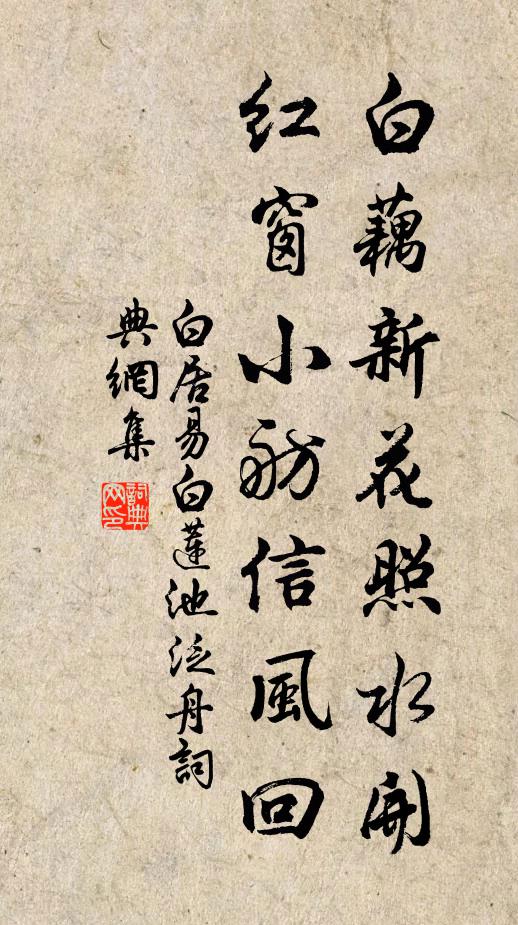 白藕新花照水開
紅窗小舫信風回
白居易白蓮池泛舟詞
典網集
詞典网印